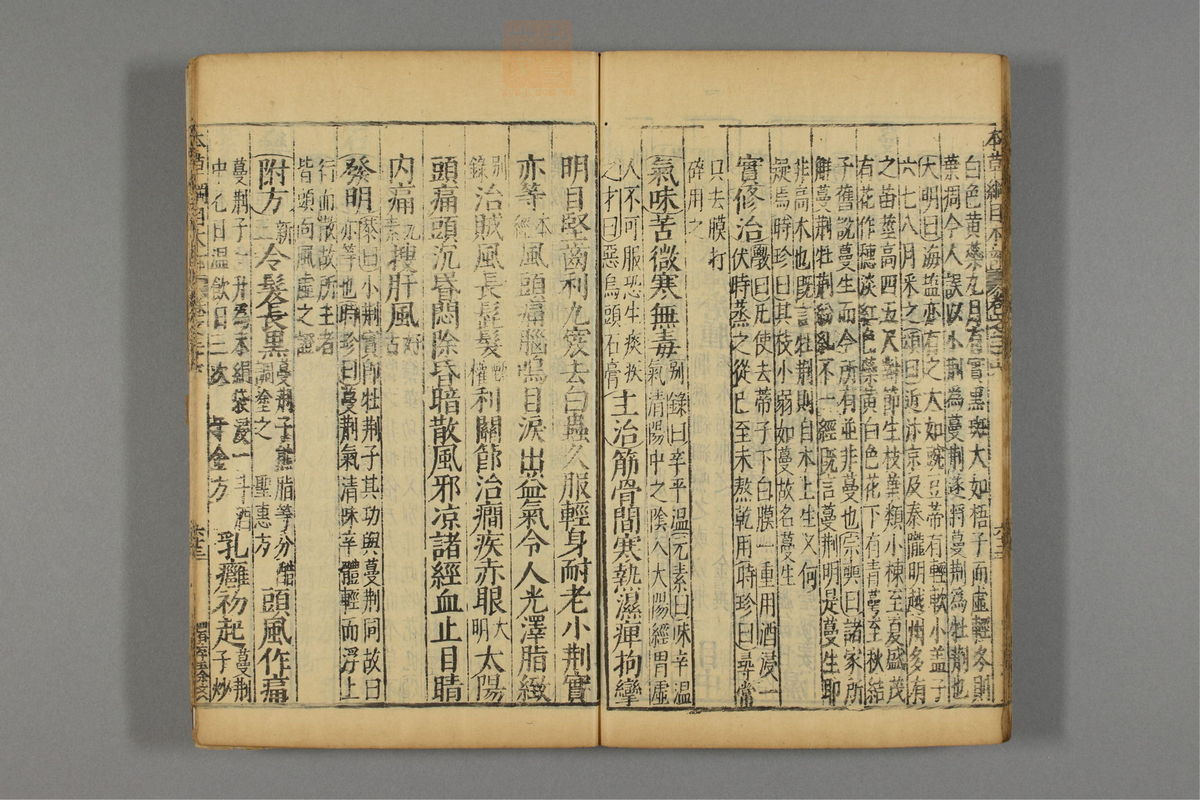 白色黄蘂九月有實黒斑大如梧子而虛輕冬則
葉凋今人誤以小荆為蔓荆遂將蔓荆為牡荆也
大明曰海鹽亦有之大如豌豆蒂有輕軟小蓋子
六七八月采之頌曰近汴京及秦隴明越州多有
之苗莖高四五尺對節生枝葉類小楝至夏盛茂
有花作穗淡紅色蘂黄白色花下有青萼至秋結
子舊說蔓生而今所有並非蔓也宗奭曰諸家所
解蔓荆牡荆紛亂不一經既言蔓荆明是蔓生即
非高木也既言牡荆則自木上生又何
疑焉時珍曰其枝小弱如蔓故名蔓生
實修治斆曰凡使去蒂子下白膜一重用酒浸一
伏時蒸之從巳至未熬乾用時珍曰尋常
只去膜打
碎用之
氣味苦微寒無毒别錄曰辛平温元素曰味辛温
氣清陽中之陰入太陽經胃虛
人不可服恐生痰疾
之才曰惡烏頭石膏主治筋骨間寒熱濕痺拘攣
明目堅齒利九竅去白蟲久服輕身耐老小荆實
亦等本經風頭痛腦鳴目淚出益氣令人光澤脂緻
别錄治賊風長髭髮甄權利關節治癎疾赤眼大明太陽
頭痛頭沉昏悶除昏暗散風邪凉諸經血止目睛
内痛元素搜肝風好古
發明恭曰小荆實即牡荆子其功與蔓荆同故曰
亦等也時珍曰蔓荆氣清味辛體輕而浮上
行而散故所主者
皆頭面風虛之證
附方新三令髮長黒蔓荆子熊脂等分醋
調塗之 聖惠方頭風作痛
蔓荆子一升為末絹袋浸一斗酒
中七日温飲日三次 千金方乳癰初起蔓荆
子炒
本草綱目木部
六十三